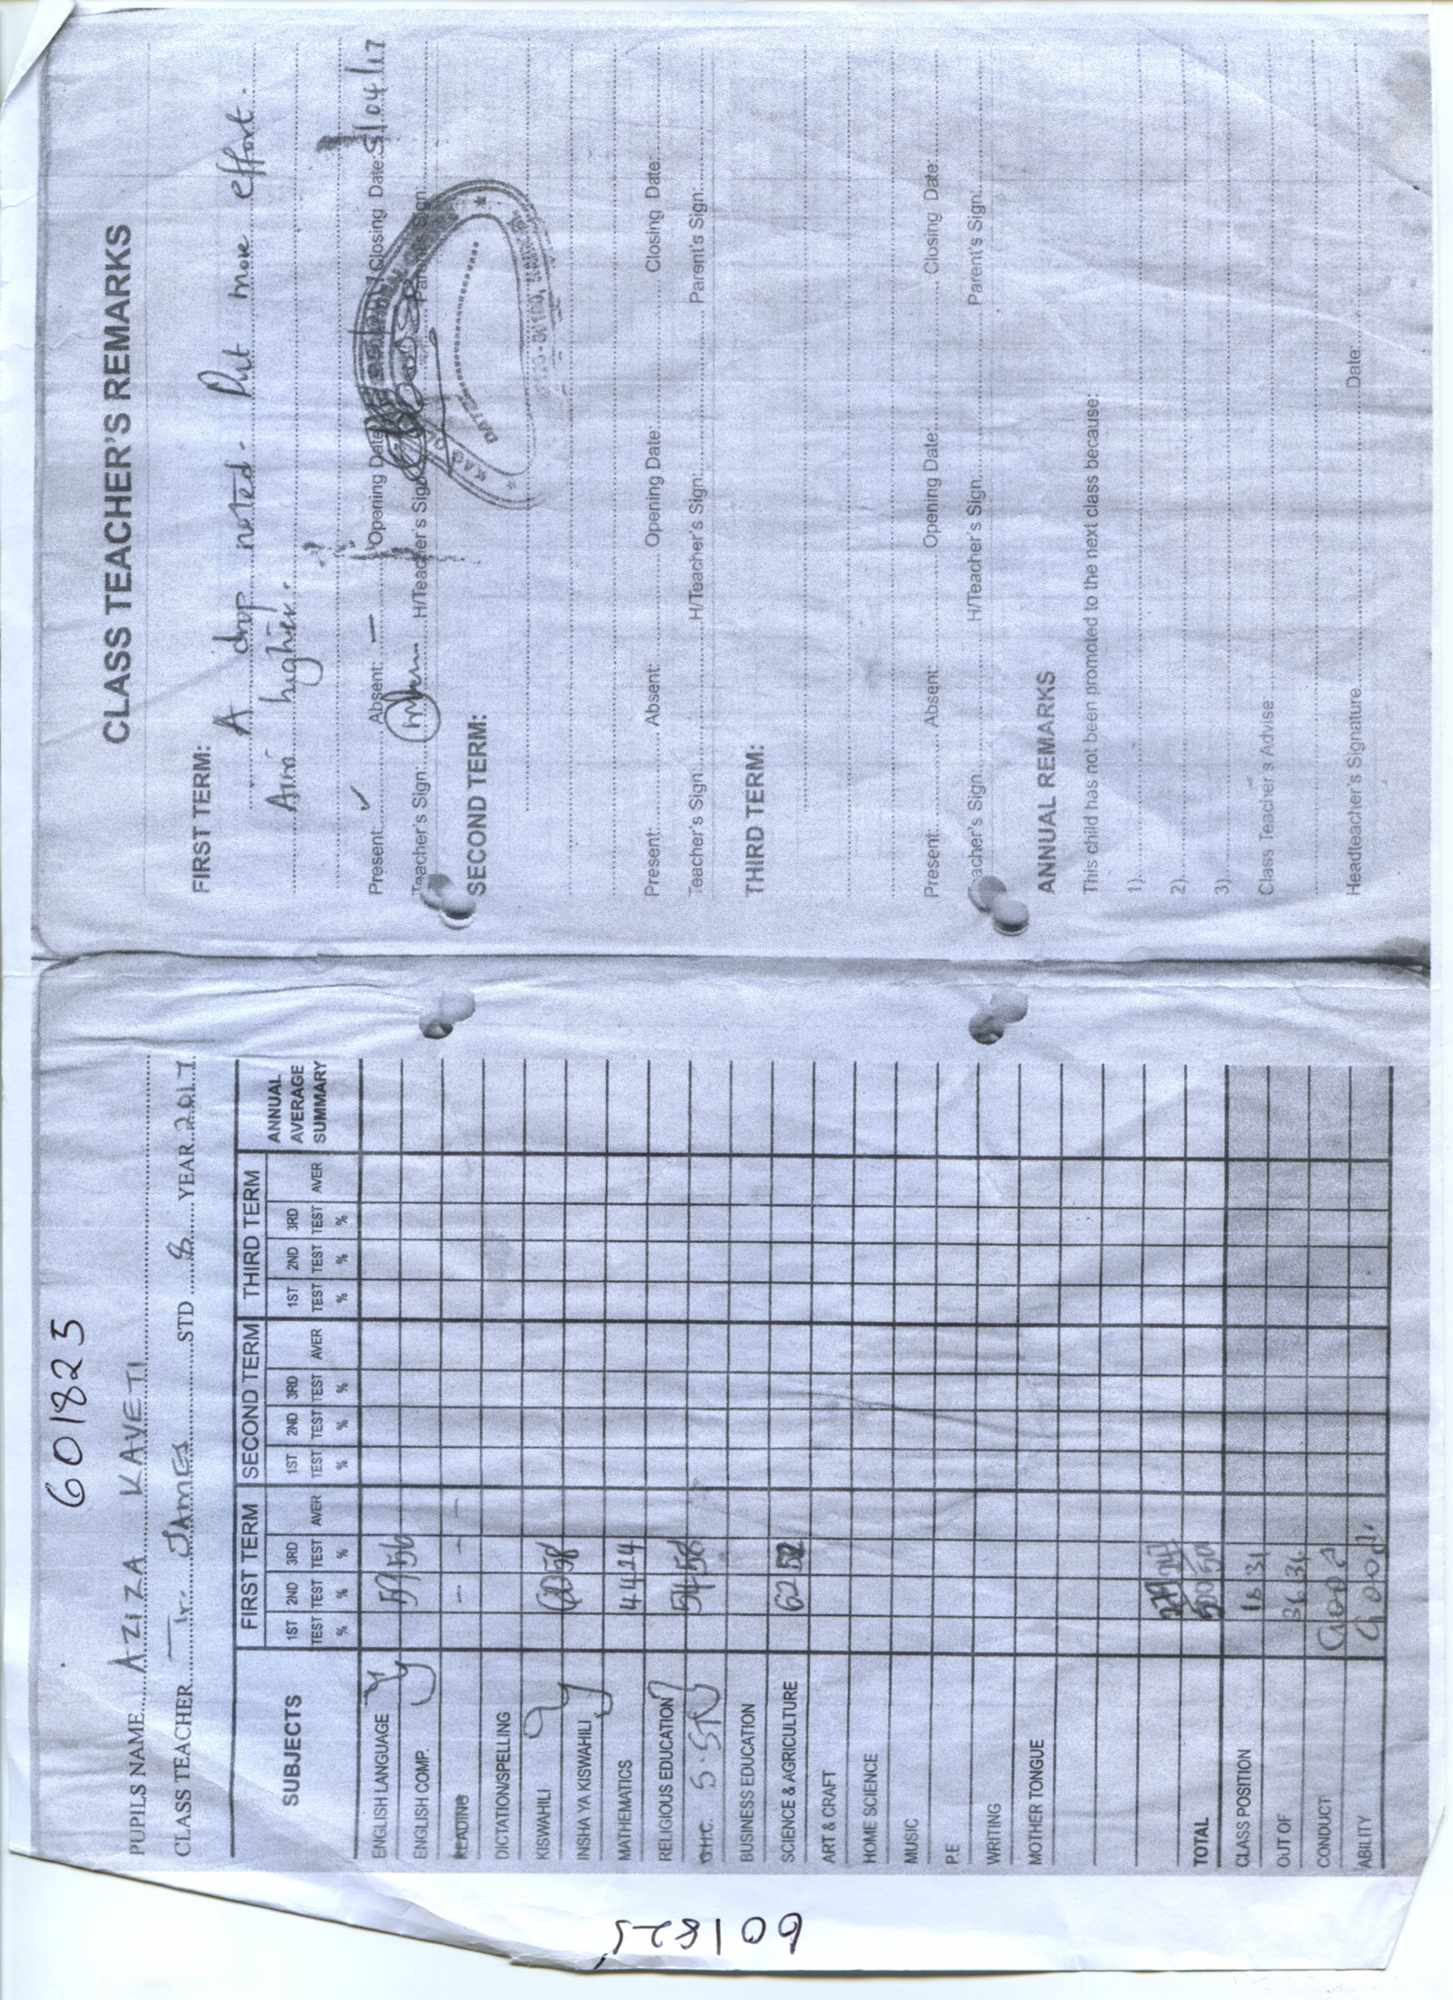 601825
PUPILS NAME AZIZA KAVETI
CLASS TEACHER Tr. JAMES STD 8 YEAR 2017
SUBJECTS FIRST TERM SECOND TERM THIRD TERM ANNUAL AVERAGE SUMMARY
1ST TEST % 2ND TEST % 3RD TEST % AVER 1ST TEST % 2ND TEST % 3RD TEST % AVER 1ST TEST % 2ND TEST % 3RD TEST % AVER
ENGLISH LANGUAGE
ENGLISH COMP. 59 56
READING - - -
DICTATION/SPELLING
KISWAHILI
INSHA YA KISWAHILI 60 58
MATHEMATICS 44 24
RELIGIOUS EDUCATION
G.H.C. S.ST 54 58
BUSINESS EDUCATION
SCIENCE & AGRICULTURE 62 52
ART & CRAFT
HOME SCIENCE
MUSIC
P.E
WRITING
MOTHER TONGUE
TOTAL 500 50
CLASS POSITION 18 31
OUT OF 36 36
CONDUCT Good
ABILITY Good
601825
CLASS TEACHER'S REMARKS
FIRST TERM:
A drop noted. Put more effort.
Aim higher.
Present: ✓ Absent: — Opening Date: Closing Date: 5/04/17
Teacher's Sign: H/Teacher's Sign: Parent's Sign:
DATE
SECOND TERM:
Present: Absent: Opening Date: Closing Date:
Teacher's Sign: H/Teacher's Sign: Parent's Sign:
THIRD TERM:
Present: Absent: Opening Date: Closing Date:
Teacher's Sign: H/Teacher's Sign: Parent's Sign:
ANNUAL REMARKS
This child has not been promoted to the next class because:
1)
2)
3)
Class Teacher's Advise
Headteacher's Signature Date: